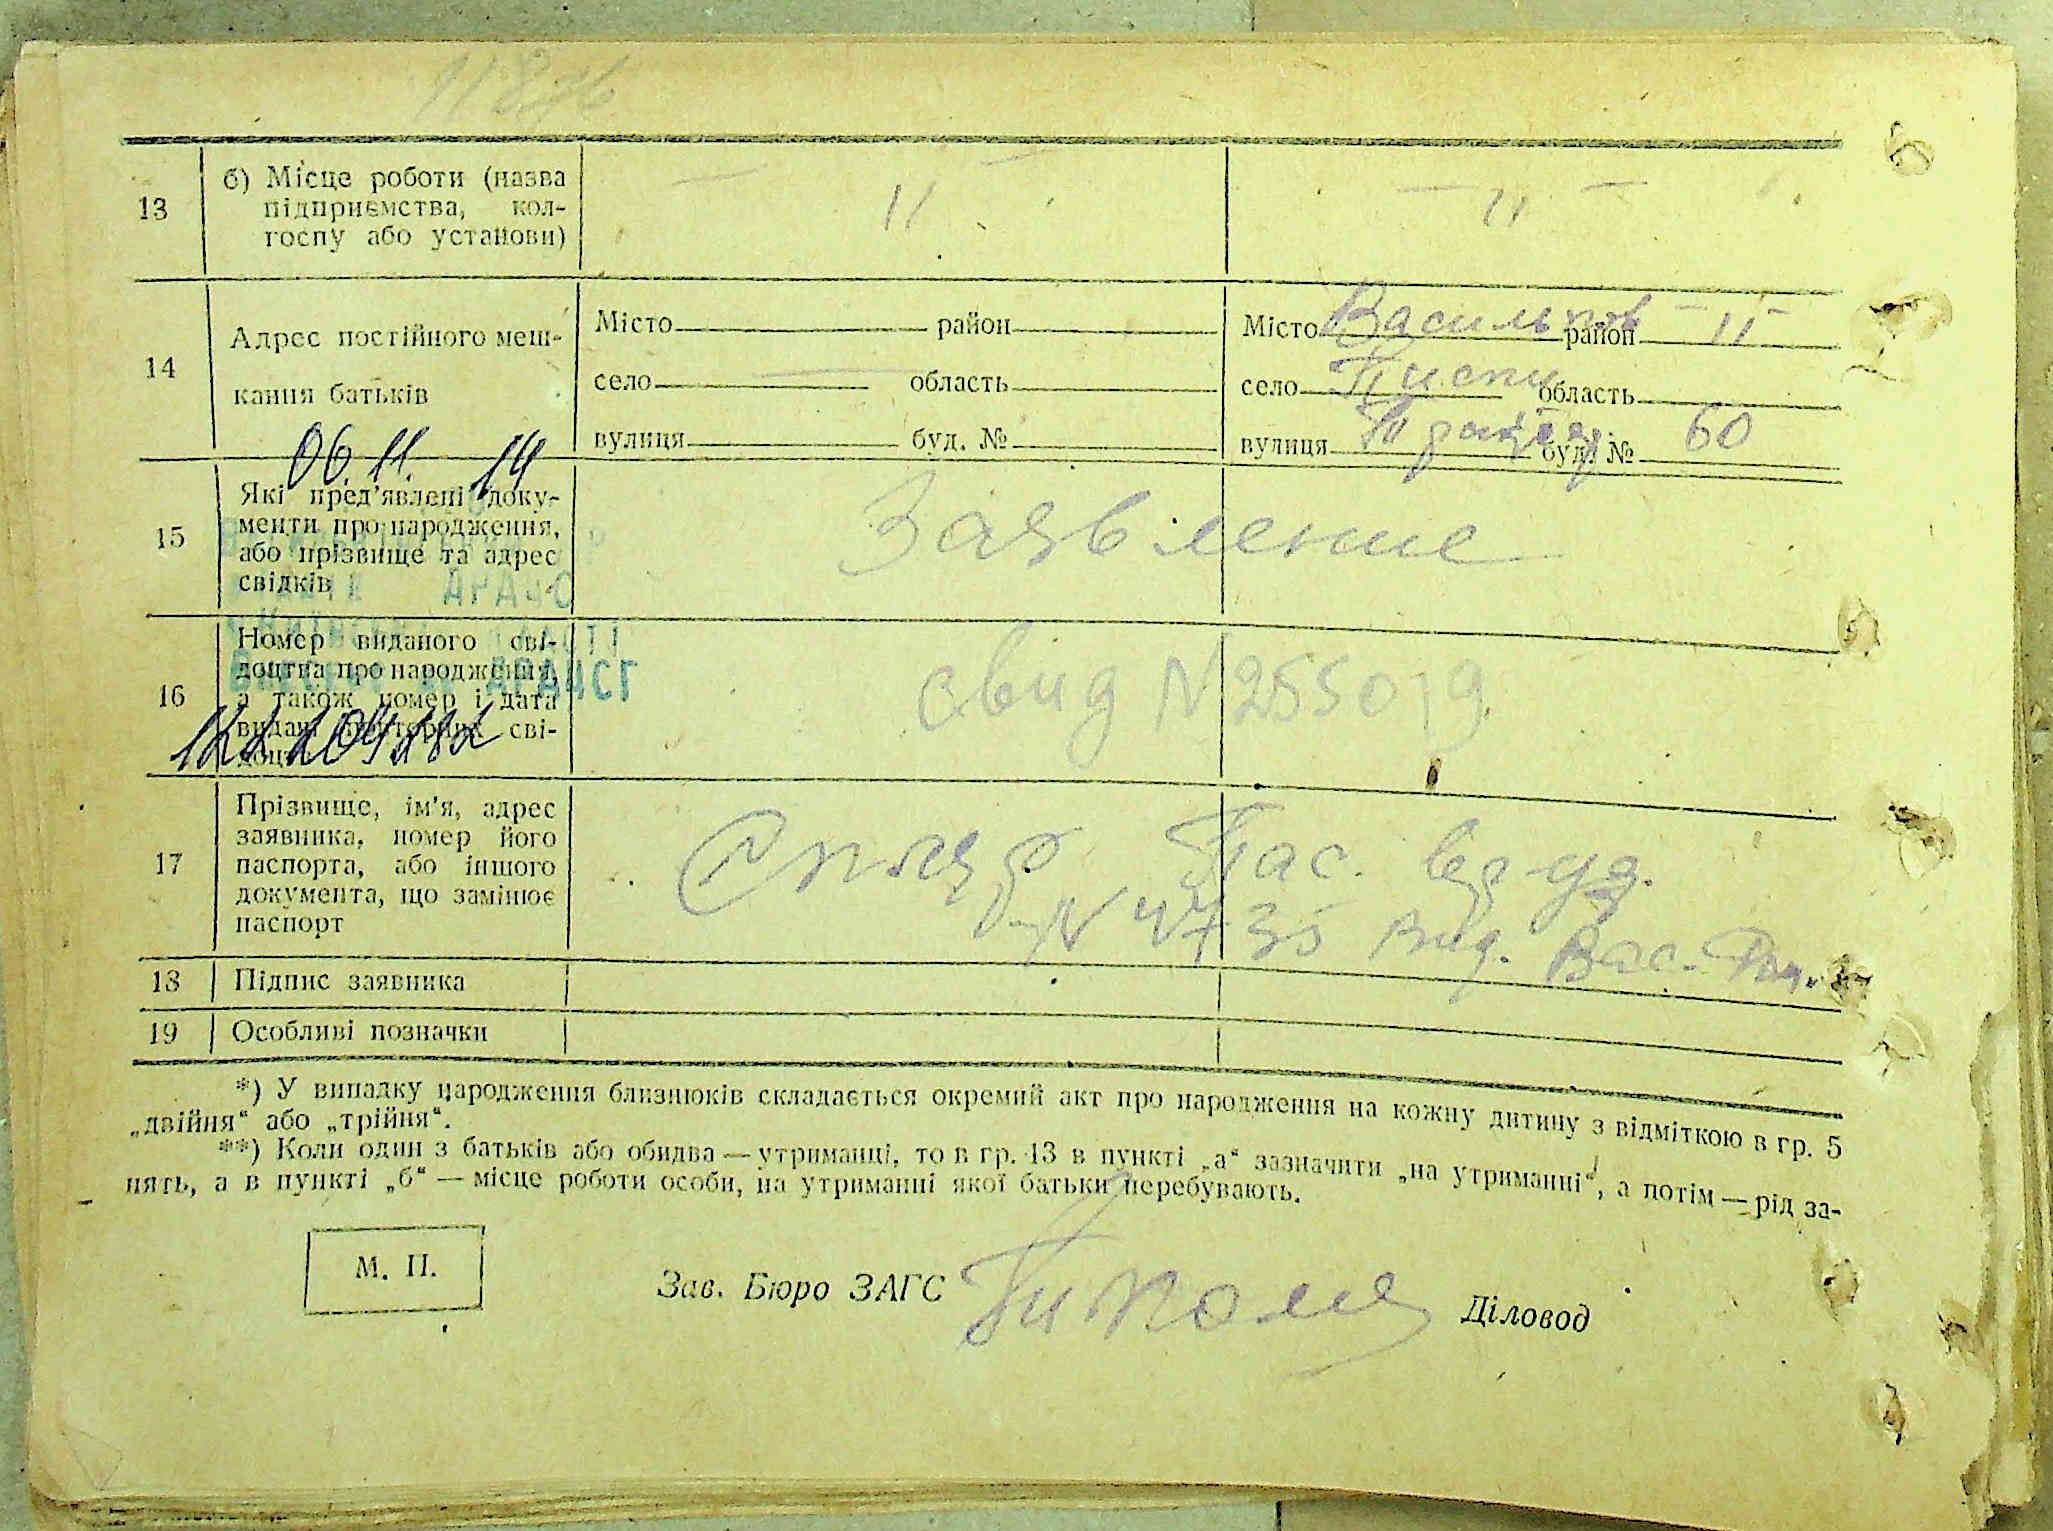 13
б) Місце роботи (назва
підприємства, кол-
госпу або установи)
— 11 —
— 11 —
14
Адрес постійного меш-
кання батьків
Місто район
село область
вулиця буд. №
Місто Васильков район — 11 —
село Писки область
вулиця буд. № 60
06.11. 14
15
Які пред'явлені доку-
менти про народження,
або прізвище та адрес
свідків
Заявление
16
Номер виданого сві-
доцтва про народження,
а також номер і дата
видачі повторних сві-
доцтв
свид N 255019
17
Прізвище, ім'я, адрес
заявника, номер його
паспорта, або іншого
документа, що замінює
паспорт
Пас.
Вид. Вас.
18
Підпис заявника
19
Особливі позначки
*) У випадку народження близнюків складається окремий акт про народження на кожну дитину з відміткою в гр. 5
„двійня“ або „трійня“.
**) Коли один з батьків або обидва — утриманці, то в гр. 13 в пункті „а“ зазначити „на утриманні“, а потім — рід за-
нять, а в пункті „б“ — місце роботи особи, на утриманні якої батьки перебувають.
М. П.
Зав. Бюро ЗАГС
Діловод